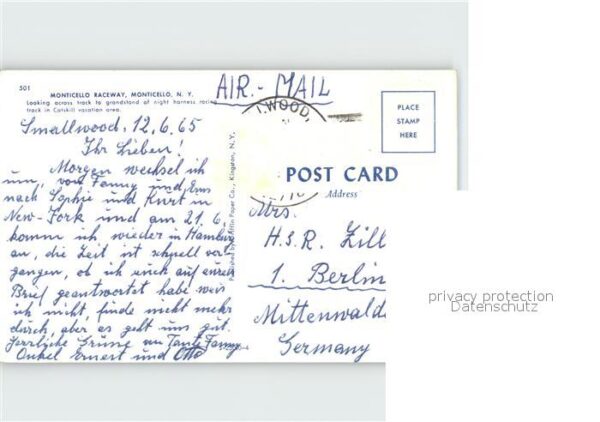 501
MONTICELLO RACEWAY, MONTICELLO, N. Y.
Looking across track to grandstand of night harness racing
track in Catskill vacation area.
AIR.- MAIL
WOOD
PLACE
STAMP
HERE
Smallwood, 12.6.65
Ihr Lieben!
Morgen wechsel ich
um, von Fanny und Erns
nach Sophie und Kurt in
New-York und am 21.6.
komm ich wieder in Hamburg
an, die Zeit ist schnell ver
gangen, ob ich euch auf euren
Brief geantwortet habe weis
ich nicht, finde nicht mehr
durch, aber es geht uns gut.
Herrliche Grüße von Tante Fanny
Onkel Ernest und Otto
Published by Paper Co., Kingston, N.Y.
POST CARD
Address
Mrs.
H.S.R. Zill
1. Berlin
Mittenwalde
Germany
privacy protection
Datenschutz